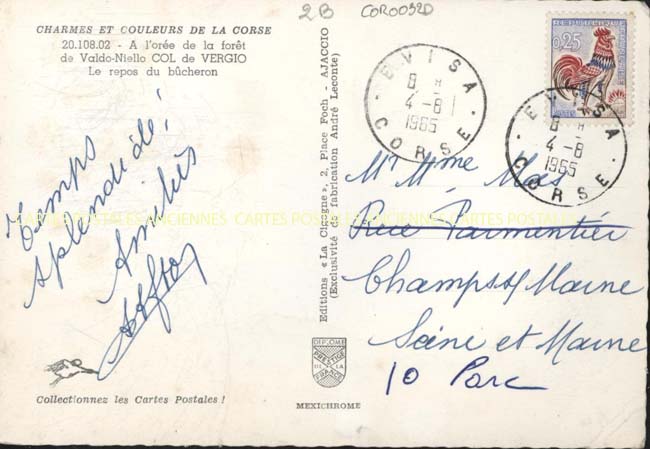 2B COR0032D
CHARMES ET COULEURS DE LA CORSE
20.108.02 - A l'orée de la forêt
de Valdo-Niello COL de VERGIO
Le repos du bûcheron
Temps
splendide!
Amitiés
Collectionnez les Cartes Postales !
Editions « La Cigogne », 2, Place Foch - AJACCIO
(Exclusivité de fabrication André Leconte)
DIPLOME
PRESTIGE
DE LA
FRANCE
MEXICHROME
EVISA
8 H
4-8
1965
CORSE
0,25
EVISA
8 H
4-8
1965
CORSE
Mr Mme Mas
Rue Parmentier
Champs s/ Marne
Seine et Marne
10 Parc
CARTES POSTALES ANCIENNES CARTES POSTALES ANCIENNES CARTES POSTALES